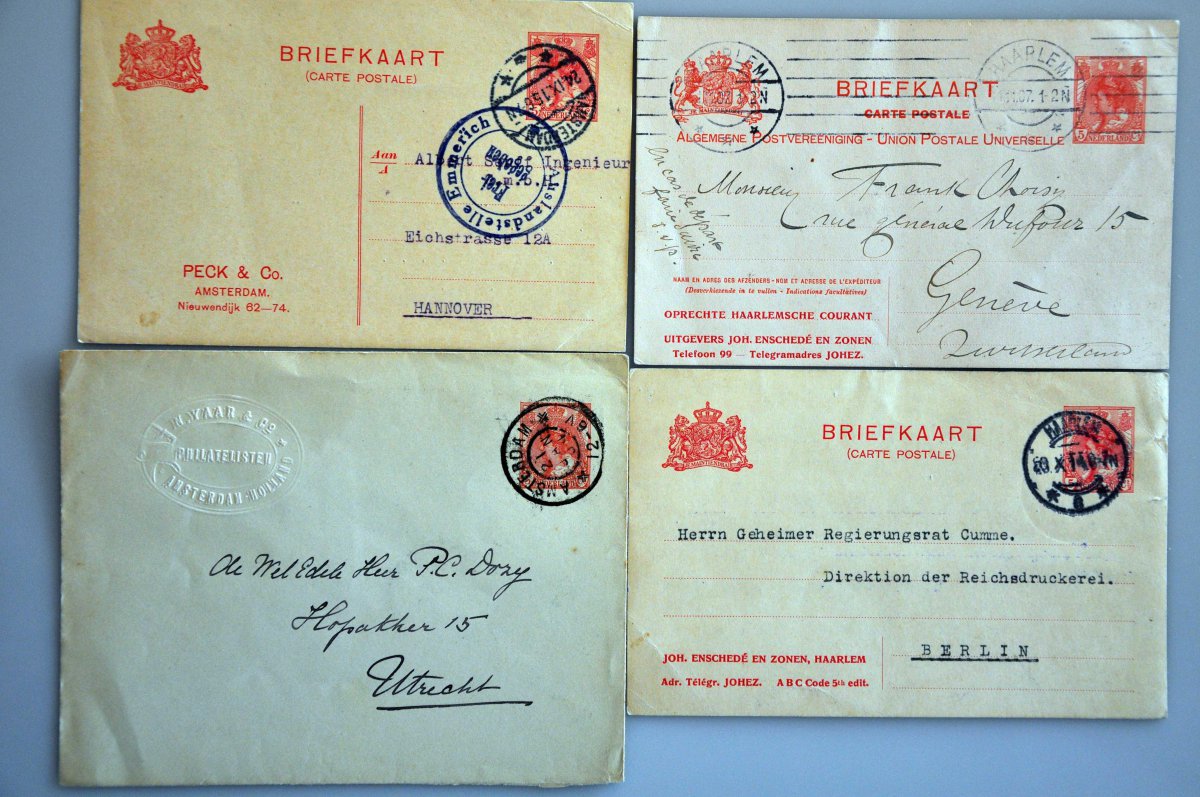 BRIEFKAART
(CARTE POSTALE)
AMSTERDAM
Auslandstelle Emmerich
Aan
A
Albert Ingenieur
m.b.H.
Eichstrasse 12A
HANNOVER
PECK & Co.
AMSTERDAM.
Nieuwendijk 62—74.
HAARLEM
HAARLEM
1-2N
BRIEFKAART
CARTE POSTALE
ALGEMEENE POSTVEREENIGING - UNION POSTALE UNIVERSELLE
5
NEDERLAND
en cas de départ
s.v.p.
Monsieur Frank Choisy
rue général Dufour 15
Genève
Zwitserland
NAAM EN ADRES DES AFZENDERS - NOM ET ADRESSE DE L'EXPÉDITEUR
(Desverkiezende in te vullen - Indications facultatives)
OPRECHTE HAARLEMSCHE COURANT
UITGEVERS JOH. ENSCHEDÉ EN ZONEN
Telefoon 99 — Telegramadres JOHEZ.
W. YAAR & Co
PHILATELISTEN
AMSTERDAM-HOLLAND
AMSTERDAM
12-6V
de Wel Edele Heer P.C. Dozy
Hopakker 15
Utrecht
BRIEFKAART
(CARTE POSTALE)
Herrn Geheimer Regierungsrat Cumme.
Direktion der Reichsdruckerei.
BERLIN
JOH. ENSCHEDÉ EN ZONEN, HAARLEM
Adr. Télégr. JOHEZ. A B C Code 5th edit.